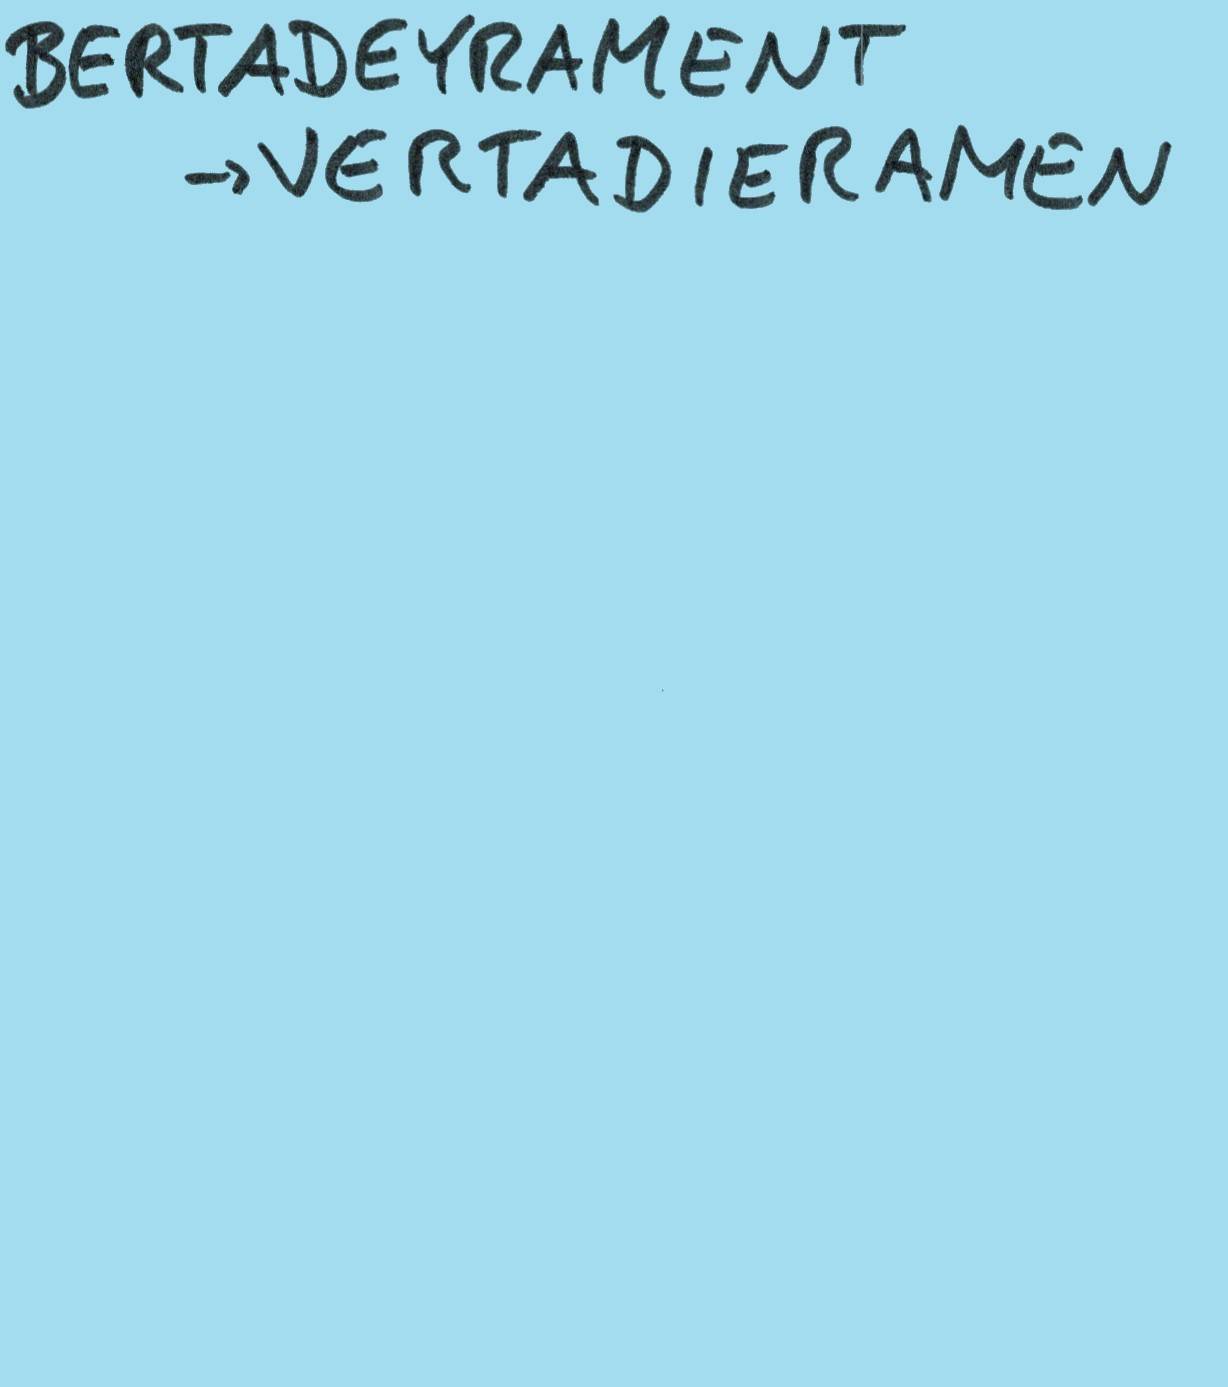 BERTADEYRAMENT
→VERTADIERAMEN